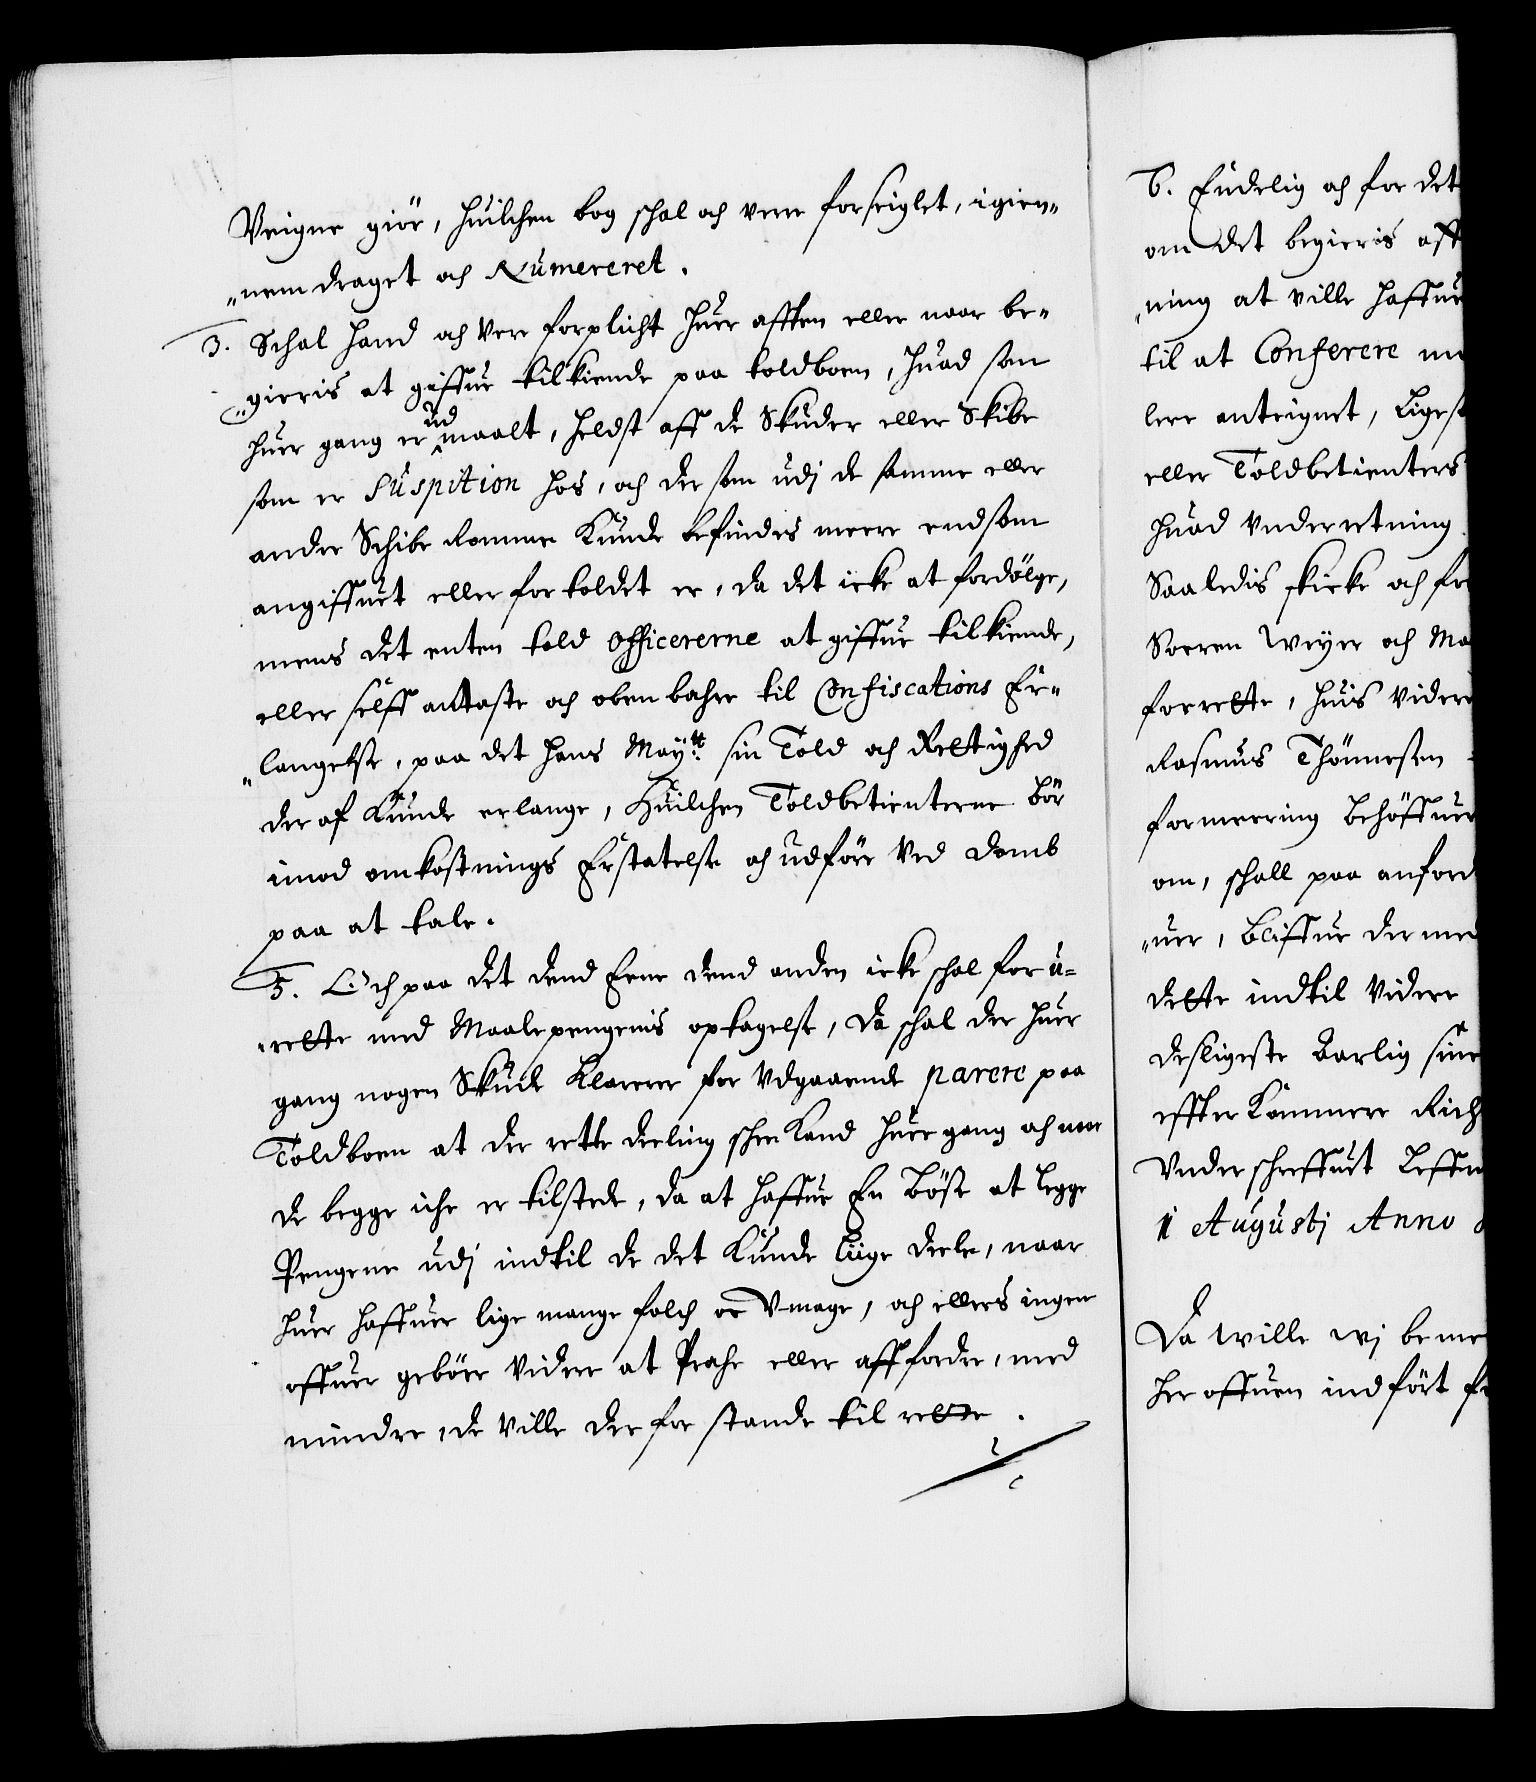 Veigne giör, huilchen bog schal och vere forseiglet, igien¬
nem draget och Numereret.
3. Schal hand och vere forplicht huer afften eller naar be¬
gieris at giffue tilkiende paa toldboen, huad som
huer gang er ud maalt, heldst aff de Skuder eller Skibe
som er Suspition hos, och der som udj de samme eller
andre Schibe Romme Kunde befindes meere end som
angiffuet eller fortoldet er, da det icke at fordölge,
mens det enten told Officererne at giffue tilkiende,
eller selff anttaste och obenbahre til Confiscations Er¬
langelse, paa det hans Maytt. sin Told och Rettighed
der af Kunde erlange, Huilchen Toldbetienterne bör
imod omkostnings Erstatelse och udföre Ved domb
paa at tale.
5. Och paa det dend Eene dend anden icke schal for u¬
rette med Maalepengenis optagelse, da schal der huer
gang nogen Skude Klarerer for Udgaaende parere paa
Toldboen at der rette deeling schee Kand huer gang och naar
de begge iche er tilstede, da at haffue En Bösse at legge
Pengene udj indtil de det Kunde liige deele, naar
huer haffuer lige mange folch och Vmage, och ellers ingen
offuer gebör videre at Prahe eller affordre, med
mindre, de ville der for stande til rette.
6. Endelig och for det
om det begieris aff
ning at ville haffue
til at Conferere
lere anteignet, Ligest
eller Toldbetienters
huad Vnderretning
Saaledis skicke och for
Soeren Weyer och Ma
forrette, huis videre
Rasmus Thönnesen
formeering behöffuer
om, schall paa anford
uer, bliffue der med
dette indtil videre
desligeste aarlig sine
effter Kammere Rich
Vnderschreffuet
1 Augustj Anno
Da wille wj beme
her offuen indfört